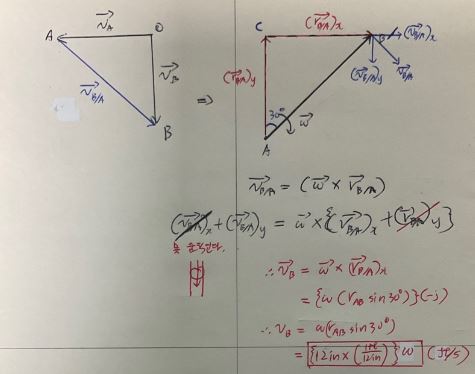 A
→v_A
O
→v_B
→v_B/A
B
⇒
C
(→r_B/A)_x
B
(→v_B/A)_x
(→r_B/A)_y
(→v_B/A)_y
→v_B/A
30°
→ω
A
→v_B/A = (→ω × →r_B/A)
(→v_B/A)_x + (→v_B/A)_y = →ω × {(→r_B/A)_x + (→r_B/A)_y}
∴ →v_B = →ω × (→r_B/A)_x
= {ω (r_AB sin30°)}(-j)
∴ v_B = ω(r_AB sin30°)
= {12in × (1ft/12in)} ω (ft/s)